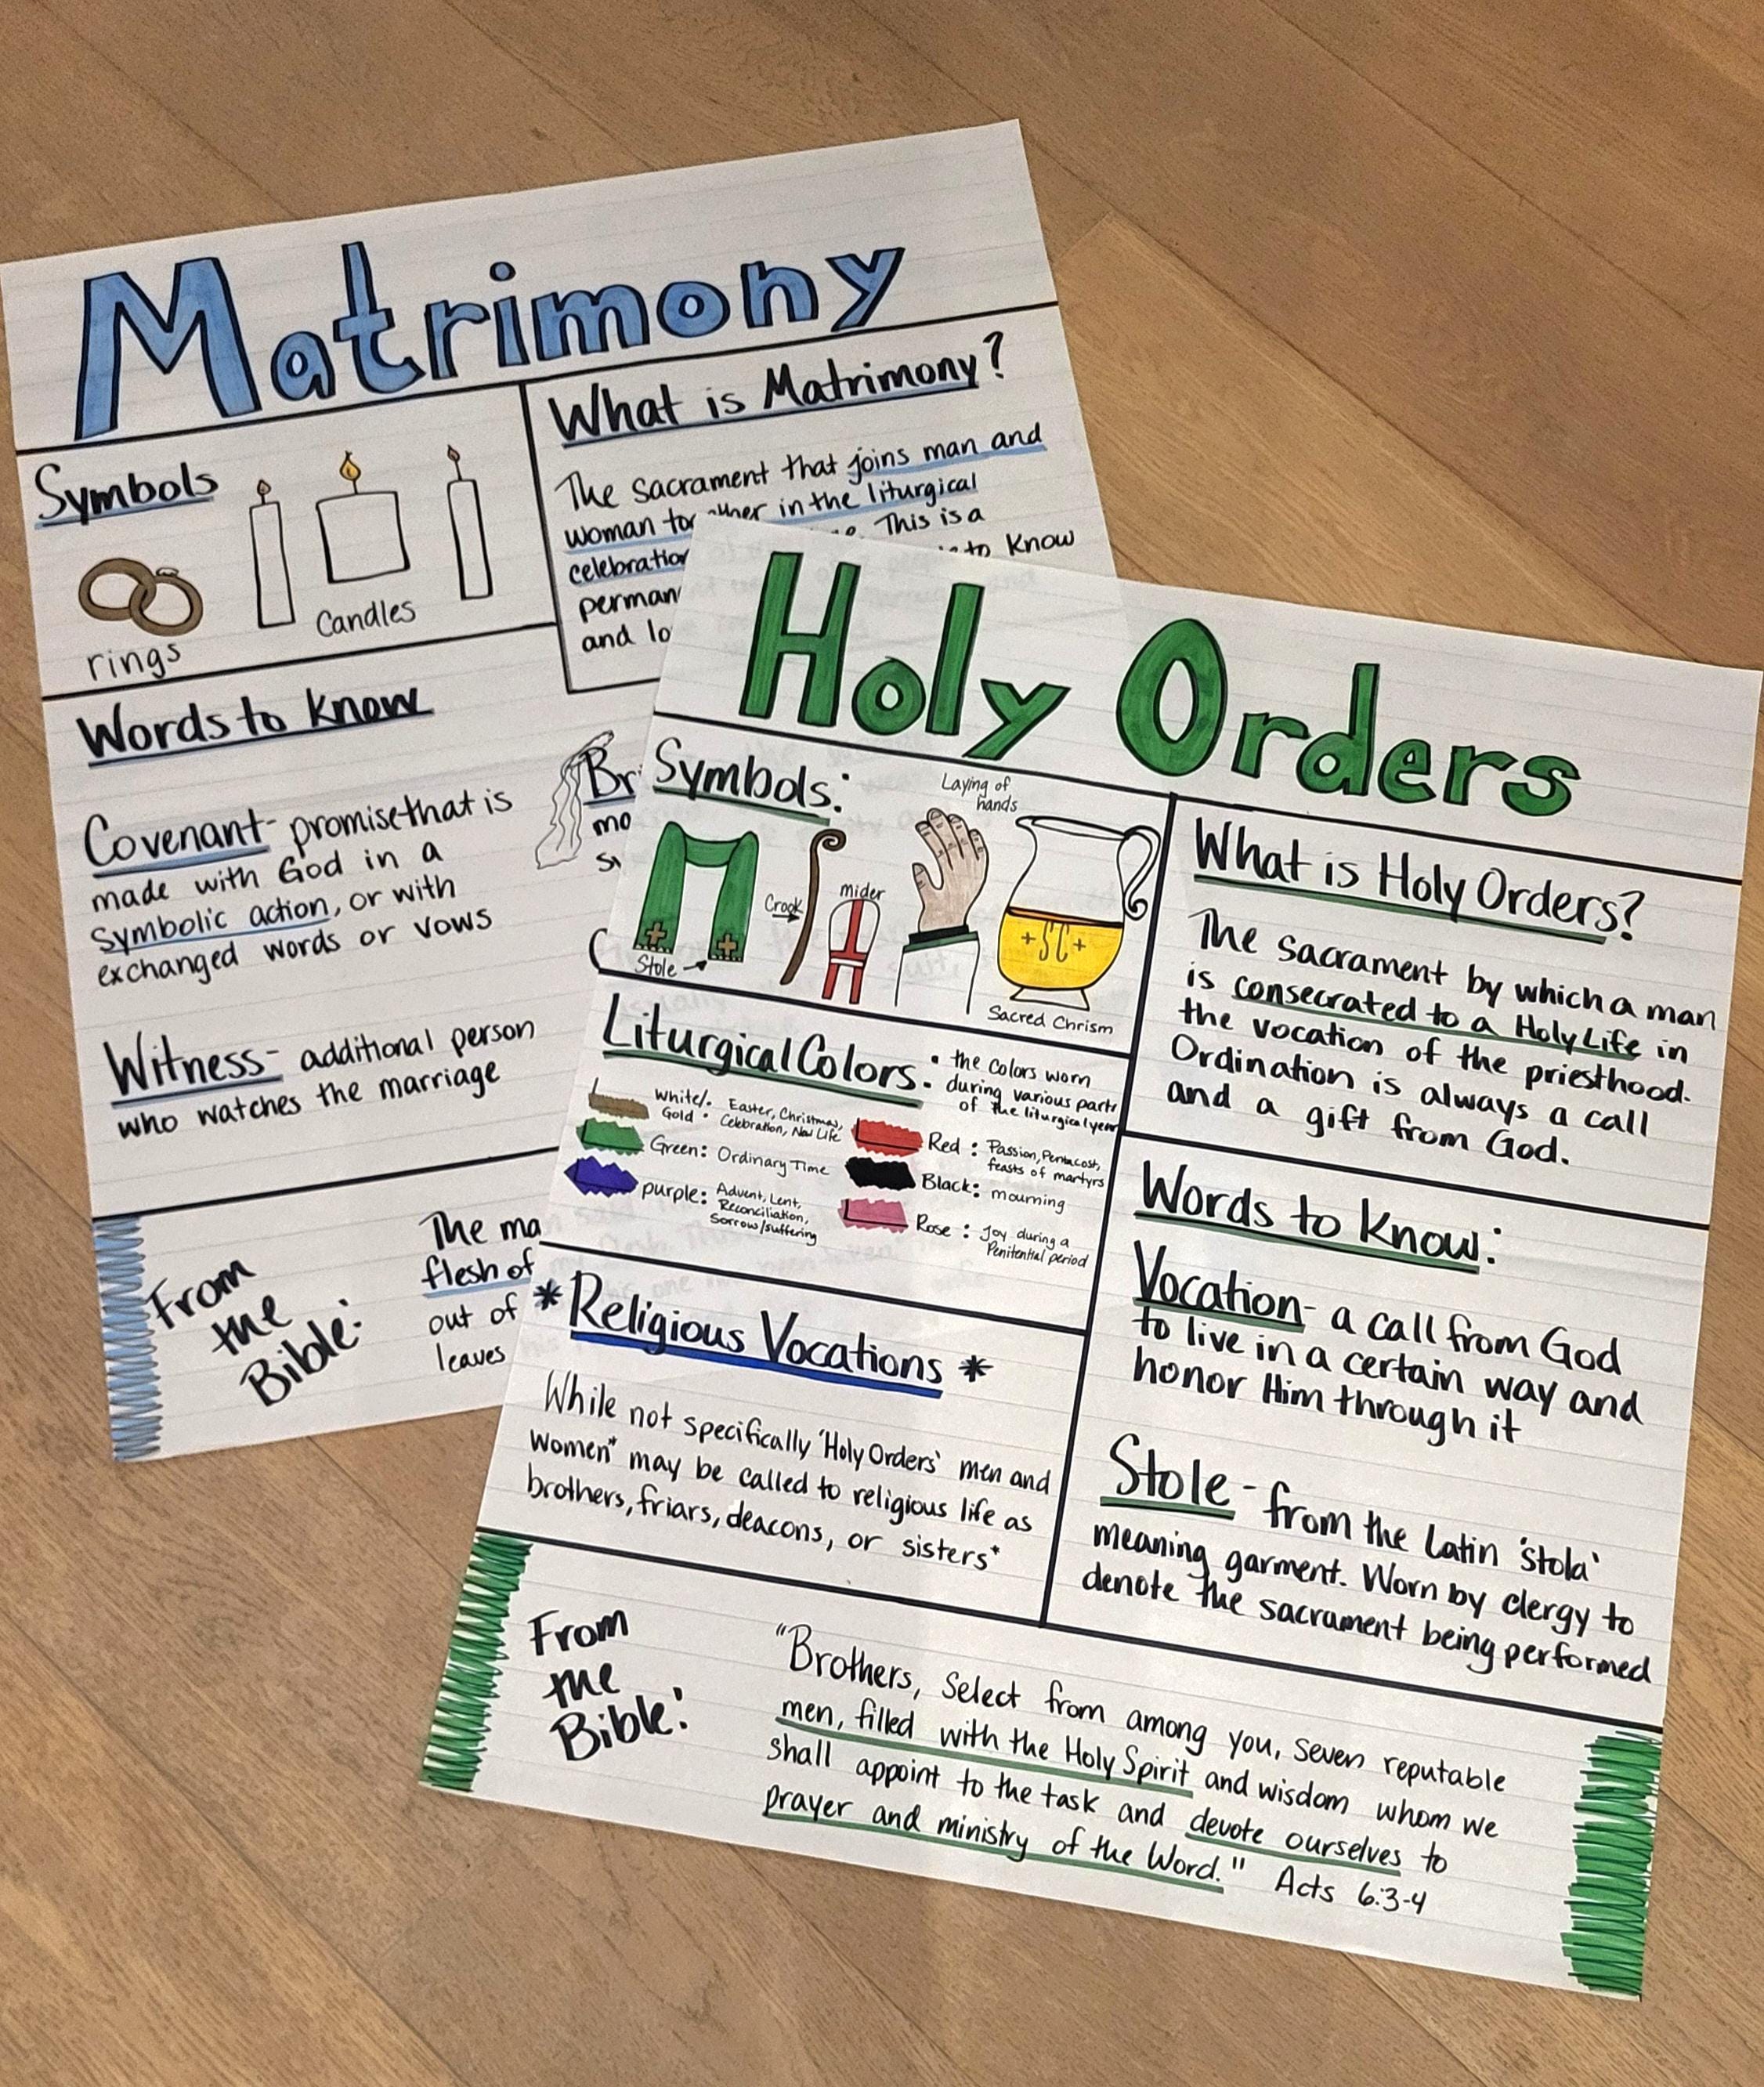 Matrimony
Symbols
rings
Candles
What is Matrimony?
The Sacrament that joins man and
woman in the liturgical
This is a
to know
and
Words to know
Covenant- promise that is
made with God in a
symbolic action, or with
exchanged words or vows
Witness- additional person
who watches the marriage
From
the
Bible:
The
flesh of
out of
leaves
Holy Orders
Symbols:
Stole
Crook
mider
Laying of
hands
+SC+
Sacred Chrism
What is Holy Orders?
The sacrament by which a man
is consecrated to a Holy Life in
the vocation of the priesthood.
Ordination is always a call
and a gift from God.
Liturgical Colors:
• the colors worn
during various parts
of the liturgical year
White/: Easter, Christmas,
Gold : Celebration, New Life
Green: Ordinary Time
purple: Advent, Lent,
Reconciliation,
Sorrow/suffering
Red : Passion, Pentacost,
feasts of martyrs
Black: mourning
Rose : Joy during a
Penitential period
Words to know:
Vocation- a call from God
to live in a certain way and
honor Him through it
Stole - from the Latin 'stola'
meaning garment. Worn by clergy to
denote the sacrament being performed
*Religious Vocations*
While not specifically 'Holy Orders' men and
women* may be called to religious life as
brothers, friars, deacons, or sisters*
From
the
Bible:
"Brothers, Select from among you, seven reputable
men, filled with the Holy Spirit and wisdom whom we
shall appoint to the task and devote ourselves to
prayer and ministry of the Word." Acts 6:3-4